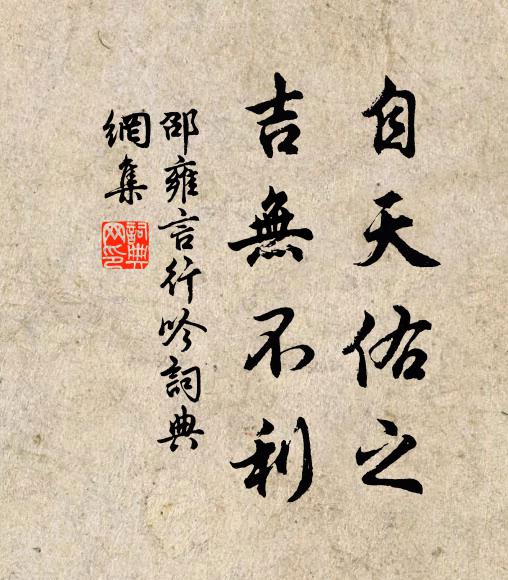 自天佑之
吉無不利
邵雍言行吟詞典
網集
詞典
网印